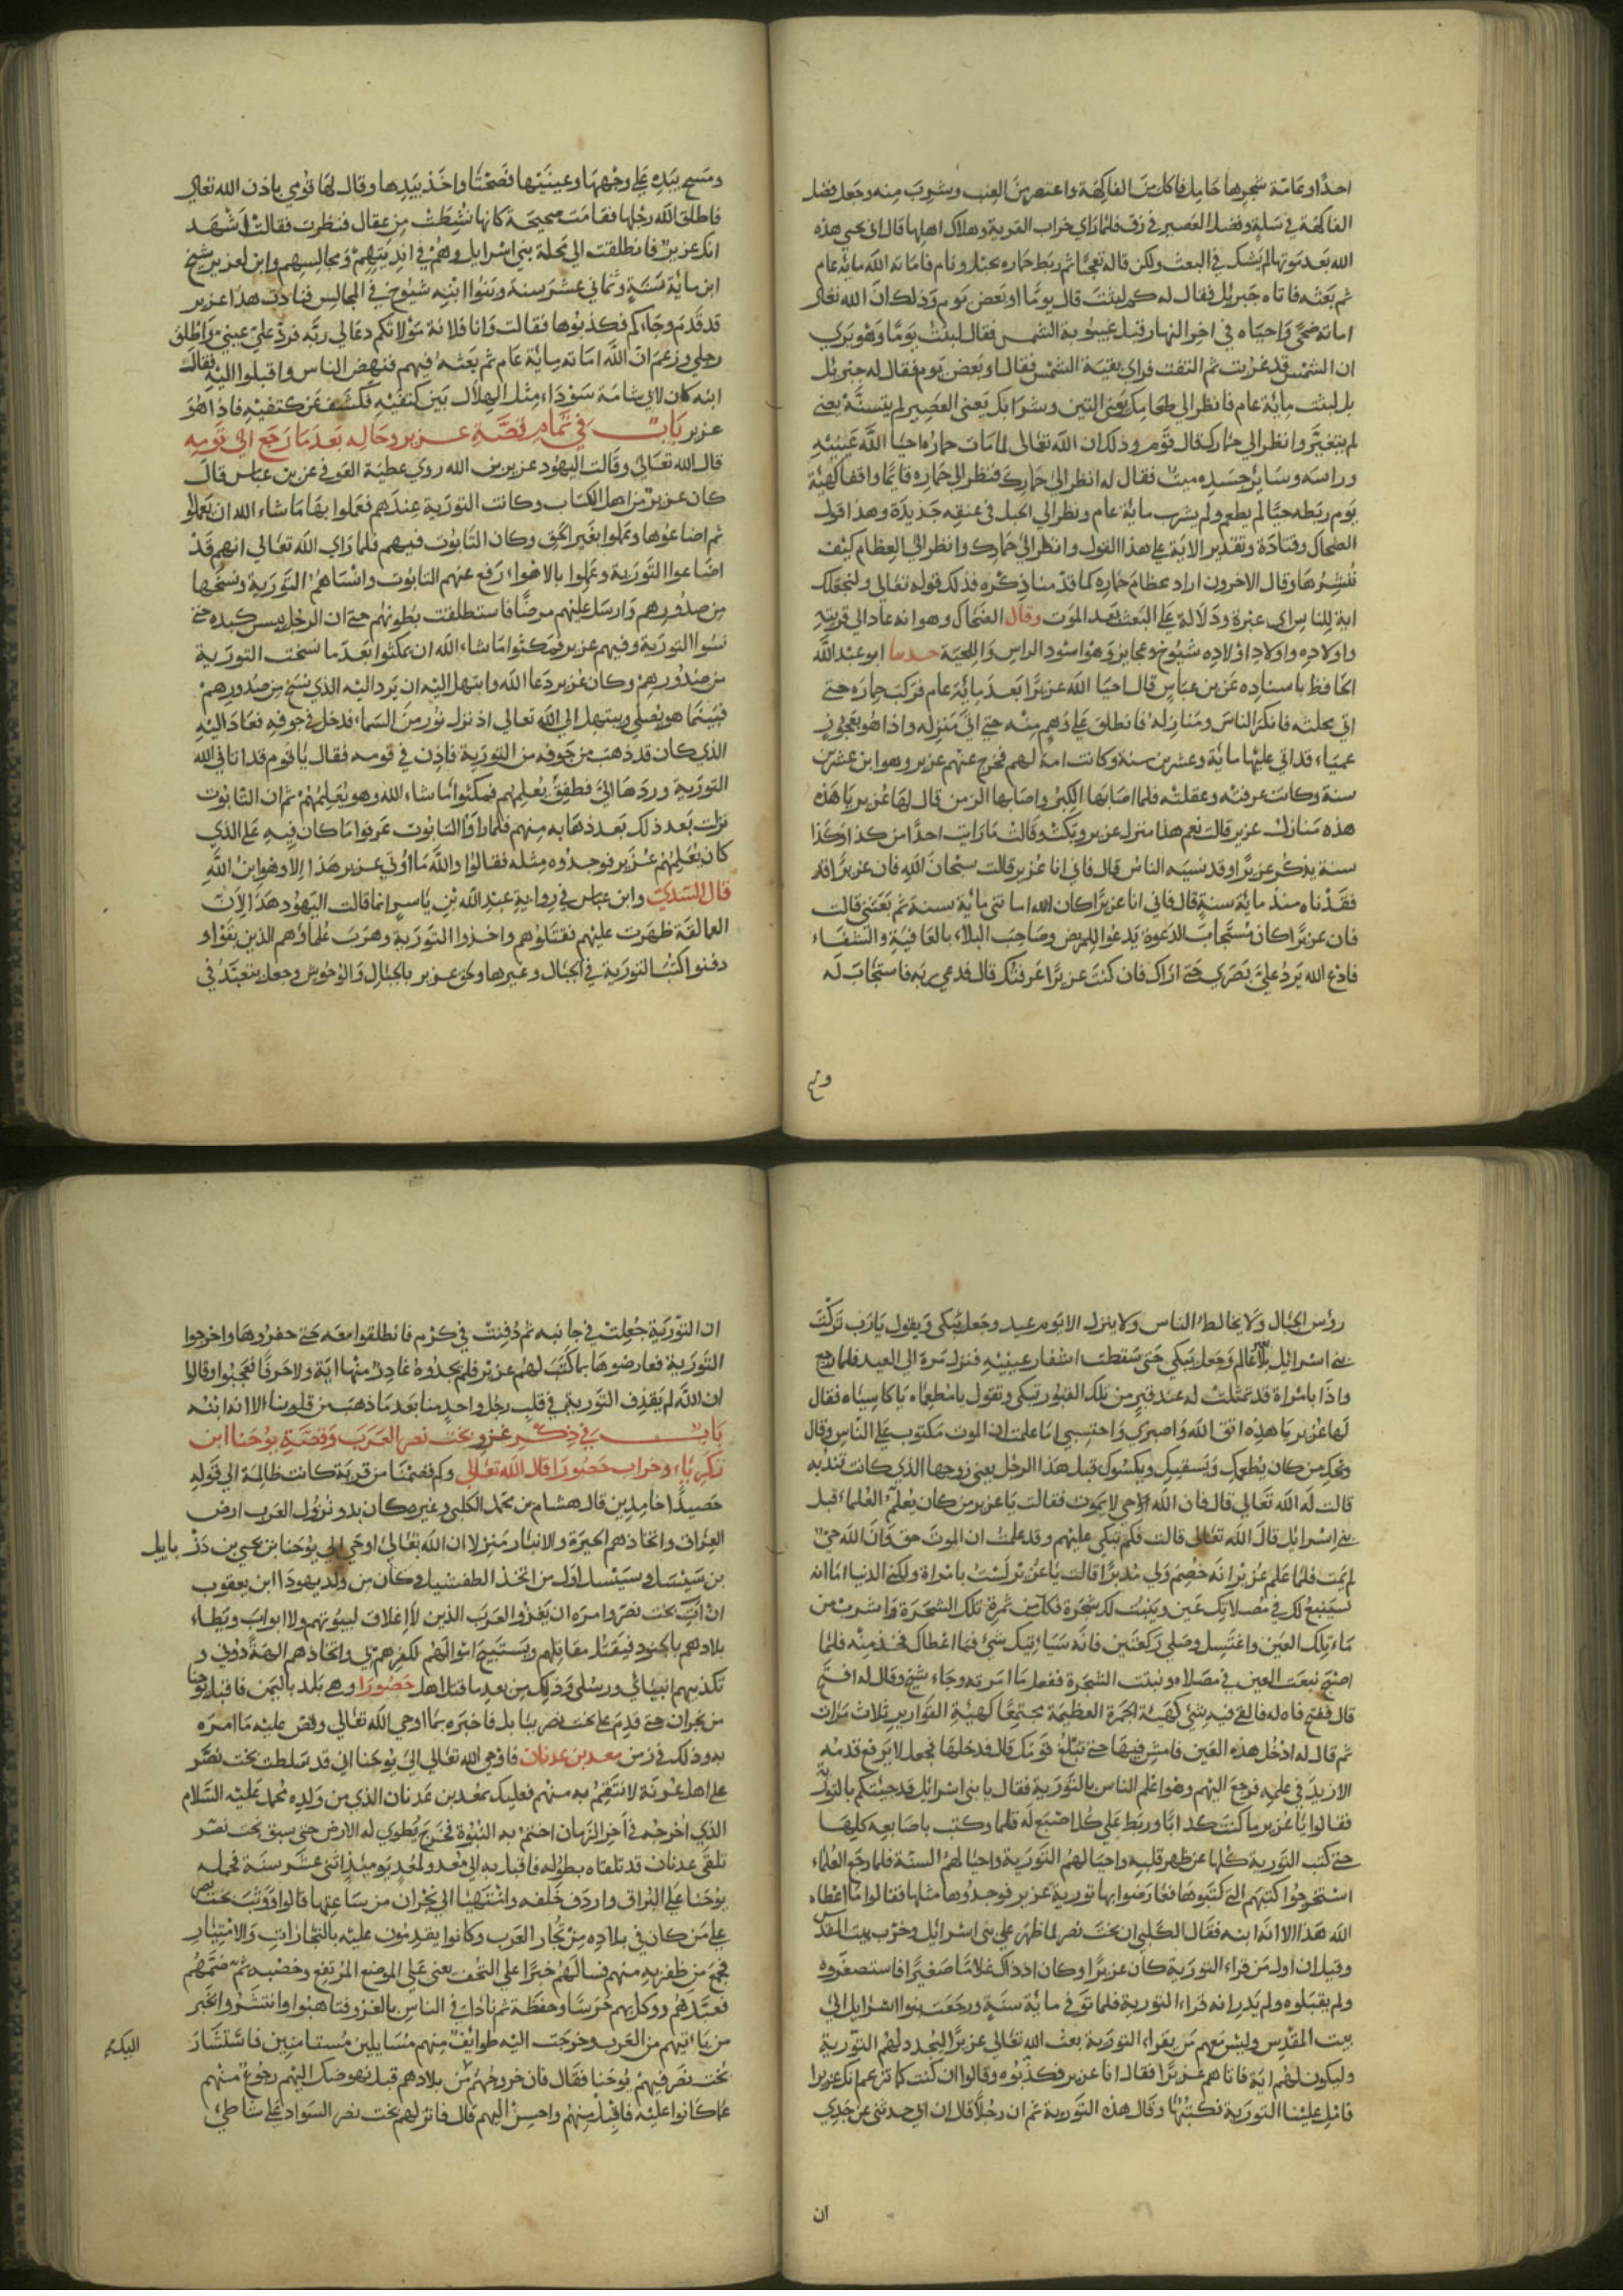 احدًا وعامّة شجرها حامل فاكل من الفاكهة واعتصر من العنب وشرب منه وجعل فضل
الفاكهة في سلة وفضل العصير في زق فلما راي خراب القرية وهلاك اهلها قال انى يحيي هذه
الله بعد موتها لم يشك في البعث ولكن قاله تعجبًا ثم ربط حماره بحبل ونام فاماته الله مائة عام
ثم بعثه فاتاه جبريل فقال له كم لبثت قال يومًا او بعض يوم وذلك ان الله تعالى
اماته ضحًى واحياه في اخر النهار قبل غيبوبة الشمس فقال لبثت يومًا وهو يري
ان الشمس قد غربت ثم التفت فراي بقية الشمس فقال او بعض يوم فقال له جبريل
بل لبثت ماية عام فانظر الى طعامك يعني التين وشرابك يعنى العصير لم يتسنّه يعني
لم يتغيّر وانظر الى حمارك قال قوم وذلك ان الله تعالى لما مات حماره احيا الله عينيه
وراسه وساير جسده ميت فقال له انظر الى حمارك فنظر الى حماره قايمًا واقفا كهيئة
يوم ربطه حيًا لم يطعم ولم يشرب ماية عام ونظر الي الحبل في عنقه جديدة وهذا قول
الضحاك وقتادة وتقدير الاية على هذا القول وانظر الى حمارك وانظر الى العظام كيف
ننشزها وقال الاخرون اراد عظام حماره كما قدمنا ذكره فذلك قوله تعالى ولنجعلك
اية للناس اى عبرة ودلالة على البعث بعد الموت وقال الضحاك وهو انه عاد الى قريته
واولاده واولاد اولاده شيوخ وعجايز وهو اسود الراس واللحية حدثنا ابو عبد الله
الحافظ باسناده عن بن عباس قال احيا الله عزيرًا بعد ماية عام فركب حماره حتى
اتى محلته فانكر الناس ومنازله فانطلق على وهم منه حتى اتى منزله واذا هو بعجوز
عمياء قد اتى عليها ماية وعشرين سنة وكانت امة لهم فخرج عنهم عزير وهو ابن عشرين
سنة وكانت عرفته وعقلته فلما اصابها الكبر واصابها الزمن قال لها عزير يا هذه
هذه منازل عزير قالت نعم هذا منزل عزير وبكت وقالت ما رايت احدًا من كذا وكذا
سنة يذكر عزيرًا وقد نسيه الناس قال فانى انا عزير قالت سبحان الله فان عزيرًا قد
فقدناه منذ ماية سنة قال فاني انا عزيرًا كان الله اماتنى ماية سنة ثم بعثني قالت
فان عزيرًا كان مستجاب الدعوة يدعوا للمريض وصاحب البلاء بالعافية والشفاء
فادع الله يرد علي بصري حتى اراك فان كنت عزيرًا عرفتك قال فدعى ربه فاستجاب له
ومسح بيده على وجهها وعينيها فصحتا واخذ بيدها وقال لها قومي باذن الله تعالى
فاطلق الله رجلها فقامت صحيحة كانها نشطت من عقال فنظرت فقالت اشهد
انك عزير فانطلقت الى محلة بني اسرايل وهم في انديتهم ومجالسهم وابن لعزير شيخ
ابن ماية سنة وثماني عشر سنة وبنوا ابنه شيوخ في المجالس فنادت هذا عزير
قد قدم وجاءكم فكذبوها فقالت وانا فلانة مولاتكم دعا لي ربه فرد علي عيني واطلق
رجلي وزعم ان الله اماته ماية عام ثم بعثه فيهم فنهض الناس واقبلوا اليه فقالت
ابنه كان لابي شامة سوداء مثل الهلال بين كتفيه فكشف عن كتفيه فاذا هو
عزير باب في تمام قصة عزير وحاله بعد ما رجع الى قومه
قال الله تعالى وقالت اليهود عزير بن الله روى عطية العوفي عن بن عباس قال
كان عزير من اهل الكتاب وكانت التورية عندهم فعملوا بها ما شاء الله ان يعملوا
ثم اضاعوها وعملوا بغير الحق وكان التابوت فيهم فلما راى الله تعالى انهم قد
اضاعوا التورية وعملوا بالاهواء رفع عنهم التابوت وانساهم التورية ونسخها
من صدورهم وارسل عليهم مرضًا فاستطلقت بطونهم حتى ان الرجل يمس كبده حتى
نسوا التورية وفيهم عزير فمكثوا ما شاء الله ان يمكثوا بعد ما نسخت التورية
من صدورهم وكان عزير دعا الله وابتهل اليه ان يرد اليه الذي نسخ من صدورهم
فبينما هو يصلي ويبتهل الى الله تعالى اذ نزل نور من السماء فدخل في جوفه فعاد اليه
الذي كان قد ذهب من جوفه من التورية فاذن في قومه فقال يا قوم قد اتاني الله
التورية وردها اليّ فطفق يعلمهم فمكثوا ما شاء الله وهو يعلمهم ثم ان التابوت
نزلت بعد ذلك بعد ذهابه منهم فلما راوا التابوت عرفوا ما كان فيه على الذي
كان يعلمهم عزير فوجدوه مثله فقالوا والله ما اوتي عزير هذا الا وهو ابن الله
قال السدي وابن عباس في رواية عبد الله بن ياسر انما قالت اليهود هذا لان
العمالقة ظهرت عليهم فقتلوهم واخذوا التورية وهرب علماؤهم الذين بقوا و
دفنوا كتب التورية في الجبال وغيرها ولحق عزير بالجبال والوحوش وجعل يتعبد في
رؤس الجبال ولا يخالط الناس ولا ينزل الا يوم عيد وجعل يبكي ويقول يا رب تركت
بني اسرايل بلا عالم وجعل يبكي حتى سقطت اشفار عينيه فنزل مرة الى العيد فلما رجع
واذا بامراة قد تمثلت له عند قبر من تلك القبور تبكي وتقول يا مطعماه يا كاسياه فقال
لها عزير يا هذه اتق الله واصبري واحتسبي اما علمت ان الموت مكتوب على الناس وقال
ويحك من كان يطعمك ويسقيك ويكسوك قبل هذا الرجل يعنى زوجها الذي كانت تندبه
قالت له الله تعالى قال فان الله حي لا يموت فقالت يا عزير من كان يعلم العلماء قبل
بني اسرايل قال الله تعالى قالت فلم تبكي عليهم وقد علمت ان الموت حق وان الله حي
لم يمت فلما علم عزير انه خصم ولي مدبرًا قالت يا عزير لست بامراة ولكني الدنيا اما انه
سينبع لك في مصلاتك عين وينبت لك شجرة فكل من ثمرة تلك الشجرة واشرب من
ماء تلك العين واغتسل وصلي ركعتين فانه سياتيك شيخ فما اعطاك فخذ منه فلما
اصبح نبعت العين في مصلاه ونبتت الشجرة ففعل ما امرته وجاء شيخ وقال له افتح
قال ففتح فاه له فالقى فيه شئ كهيئة الجمرة العظيمة مجتمعًا كهيئة القوارير ثلاث مرات
ثم قال له ادخل هذه العين فامش فيها حتى تبلغ قومك قال فدخلها فجعل لا يرفع قدمه
الا زيد في علمه فرجع اليهم وهو اعلم الناس بالتورية فقال يا بنى اسرائل قد جئتكم بالتورية
فقالوا يا عزير ما كنت كذابًا وربط على كل اصبع له قلما وكتب باصابعه كلها
حتى كتب التورية كلها عن ظهر قلبه واحيا لهم التورية واحيا لهم السنة فلما رجع العلماء
استخرجوا كتبهم التي كتبوها فعارضوا بها تورية عزير فوجدوها مثلها فقالوا ما اعطاه
الله هذا الا انه ابنه فقال الكلبي ان بخت نصر لما ظهر على بنى اسرائل وخرب بيت المقدس
وقيل ان اول من قراء التورية كان عزيرًا وكان اذ ذاك غلامًا صغيرًا فاستصغروه
ولم يقبلوه ولم يدر انه قراء التورية فلما توفي ماية سنة ورجعت بنوا اسرايل الى
بيت المقدس وليس معهم من يقراء التورية بعث الله تعالى عزيرًا ليجدد لهم التورية
وليكون لهم اية فاتاهم عزيرًا فقال انا عزير فكذبوه وقالوا ان كنت كما تزعم انك عزيرا
فاتل علينا التورية فكتبها وقال هذه التورية ثم ان رجلًا قال ان ابي حدثنى عن جدي
ان التورية جعلت في جانبه ثم دفنت في كرم فانطلقوا معه حتى حفروها واخرجوا
التورية فعارضوها بما كتب لهم عزير فلم يجدوه غادر منها اية ولا حرفًا فعجبوا وقالوا
ان الله لم يقذف التورية في قلب رجل واحد منا بعد ما ذهبت من قلوبنا الا انه ابنه
باب في ذكر غزو بخت نصر العرب وقصة يوحنا ابن
زكرياء وخراب حصورا قال الله تعالى وكم قصمنا من قرية كانت ظالمة الى قوله
حصيدًا خامدين قال هشام بن محمد الكلبي وغيره كان بدو نزول العرب ارض
العراق واتخاذهم الحيرة والانبار منزلا ان الله تعالى اوحى الى يوحنا بن يحيى بن
اول من اتخذ الطفشيل وكان من ولد يهودا ابن يعقوب
ان ائت بخت نصر وامره ان يغزوا العرب الذين لا اغلاق لبيوتهم ولا ابواب ويطاء
بلادهم بالجنود فيقتل مقاتلهم ويستبيح اموالهم لكفرهم بي واتخاذهم الهة دوني و
تكذيبهم انبيائي ورسلي وذلك من بعد ما قتل اهل حصورا وهي بلد باليمن فاقبل يوحنا
من نجران حتى قدم على بخت نصر ببابل فاخبره بما اوحى الله تعالى وقص عليه ما امره
به وذلك في زمن معد بن عدنان فاوحى الله تعالى الى يوحنا اني قد سلطت بخت نصر
على اهل عربة لانتقم به منهم فعليك بمعد بن عدنان الذي من ولده محمد عليه السلام
الذي اخرجه في آخر الزمان اختم به النبوة فخرج يُطوى له الارض حتى سبق بخت نصر
تلقى عدنان قد تلقاه بطوله فاقبل به الى معد ولمعد يوميذ اثنى عشر سنة فحمله
يوحنا على البراق واردف خلفه وانتهيا الى نجران من ساعتها قالوا فوثب بخت نصر
على من كان في بلاده من تجار العرب وكانوا يقدمون عليه بالتجارات والامتيار
فجمع من ظفر به منهم فسالهم خبرًا على النجف يعنى على الموضع المرتفع وحصّبه ثم ضمهم
فعبدهم ووكل بهم حرسًا وحفظة ثم نادى في الناس بالغزو فتاهبوا وانتشروا الخبر
من ياءتيهم من العرب وخرجت اليه طوايف منهم مسايلين مستامنين فاستشار
بخت نصر فيهم يوحنا فقال فان خروجهم من بلادهم قبل نهوضك اليهم رجوع منهم
عما كانوا عليه فاقبل منهم واحسن اليهم قال فانزلهم بخت نصر السواد على شاطئ
ان